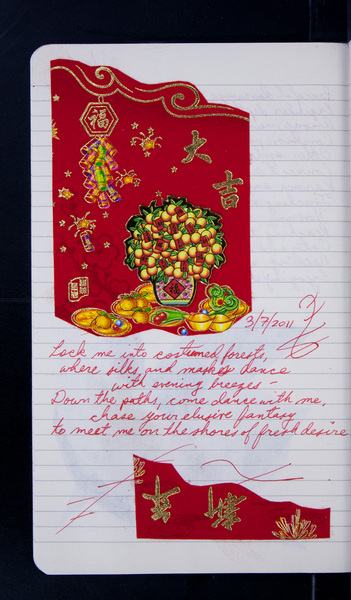 福
大
吉
福
3/7/2011
Lock me into costumed forests,
where silks and masks dance
with evening breezes —
Down the paths, come dance with me,
chase your elusive fantasy
to meet me on the shores of fresh desire